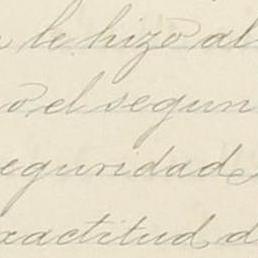 le hizo al
o el segun
eguridad
xactitud d